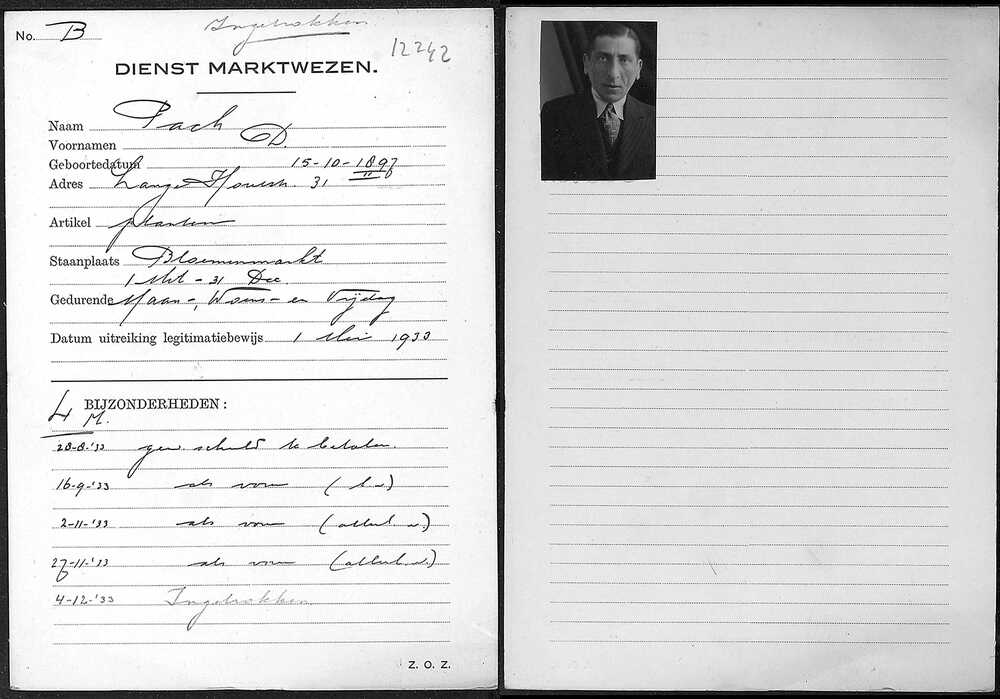 No. B
Ingetrokken
12242
DIENST MARKTWEZEN.
Naam Pach
Voornamen D.
Geboortedatum 15-10-1897
Adres Lange Houtstr. 31
Artikel planten
Staanplaats Bloemenmarkt
1 Mrt - 31 Dec.
Gedurende Maan-, Woens- en Vrijdag
Datum uitreiking legitimatiebewijs 1 Mei 1933
L
BIJZONDERHEDEN:
M.
28-8-'33 gew. schuld te betalen.
16-9-'33 als voren
2-11-'33 als voren
27-11-'33 als voren
4-12-'33 Ingetrokken
Z. O. Z.